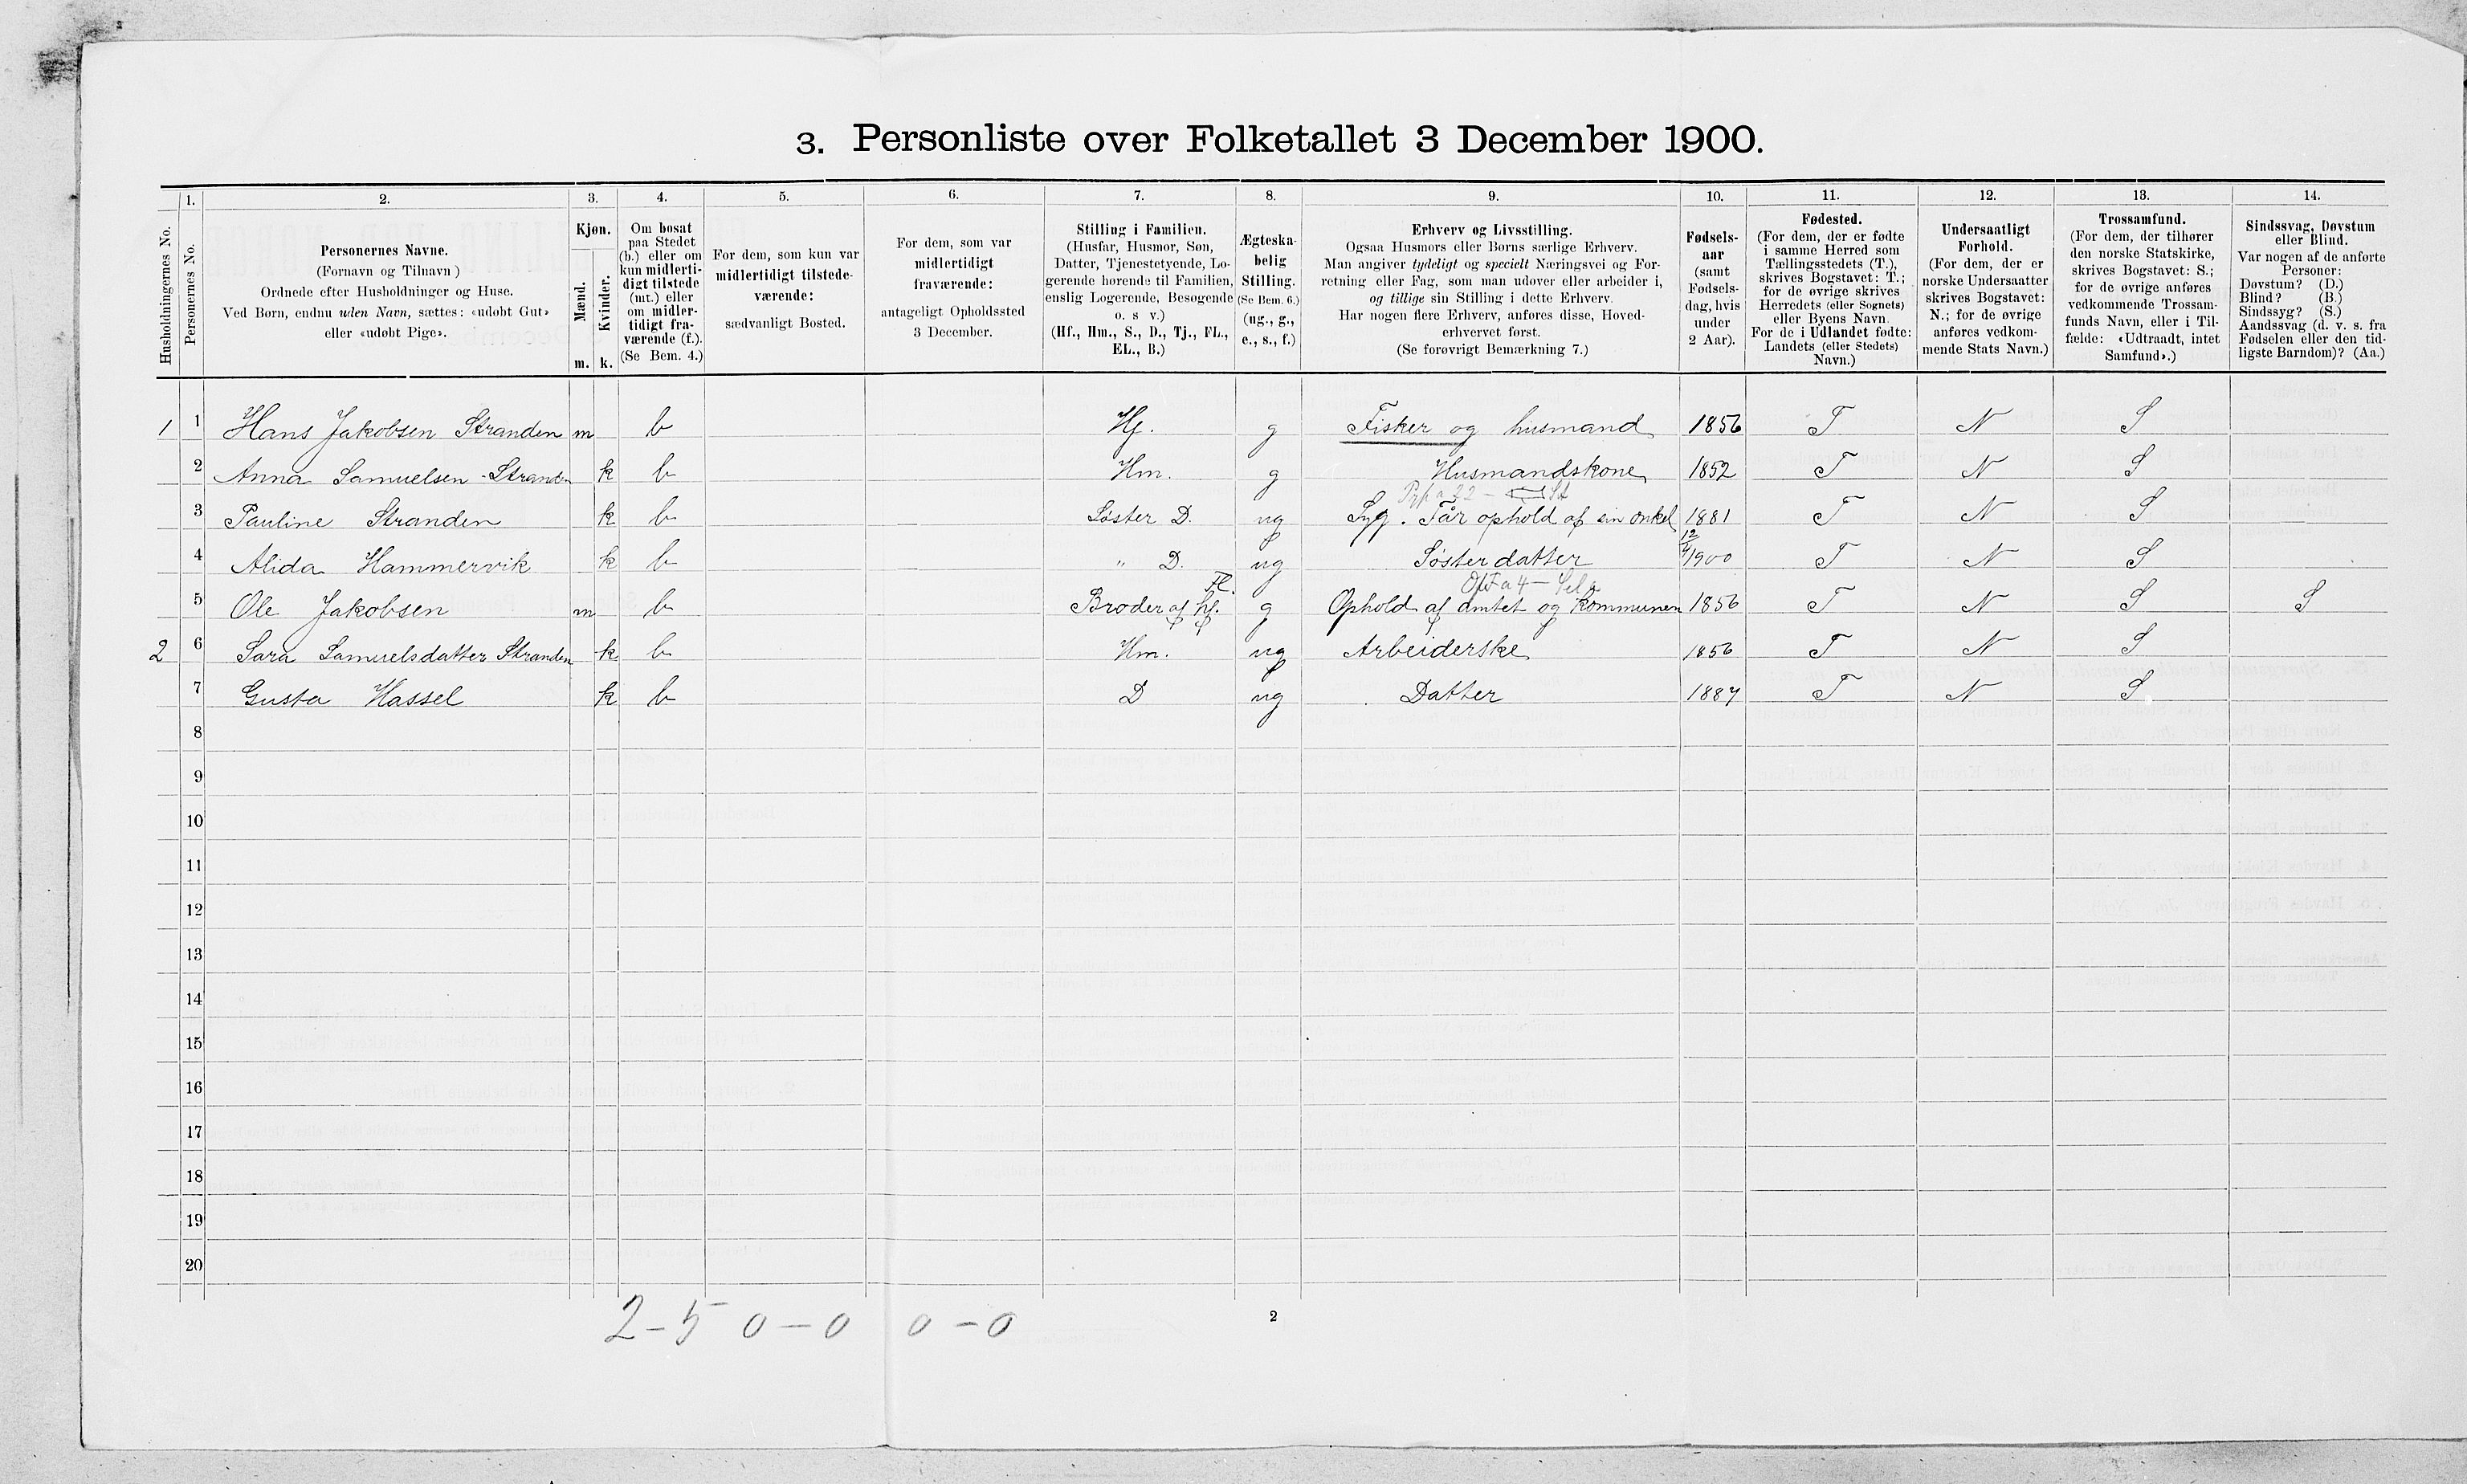 3. Personliste over Folketallet 3 December 1900.
1. 2. 3. 4. 5. 6. 7. 8. 9. 10. 11. 12. 13. 14.
Husholdningernes No.
Personernes No.
Personernes Navne.
(Fornavn og Tilnavn)
Ordnede efter Husholdninger og Huse.
Ved Børn, endnu uden Navn, sættes: «udøbt Gut»
eller «udøbt Pige».
Kjøn.
Mænd.
Kvinder.
m. k.
Om bosat
paa Stedet
(b.) eller om
kun midlerti-
digt tilstede
(mt.) eller
om midler-
tidigt fra-
værende (f.).
(Se Bem. 4.)
For dem, som kun var
midlertidigt tilstede-
værende:
sædvanligt Bosted.
For dem, som var
midlertidigt
fraværende:
antageligt Opholdssted
3 December.
Stilling i Familien.
(Husfar, Husmor, Søn,
Datter, Tjenestetyende, Lo-
gerende hørende til Familien,
enslig Logerende, Besøgende
o. s v.)
(Hf., Hm., S., D., Tj., FL.,
EL., B.)
Ægteska-
belig
Stilling.
(Se Bem. 6.)
(ug., g.,
e., s., f.)
Erhverv og Livsstilling.
Ogsaa Husmors eller Børns særlige Erhverv.
Man angiver tydeligt og specielt Næringsvei og For-
retning eller Fag, som man udøver eller arbeider i,
og tillige sin Stilling i dette Erhverv.
Har nogen flere Erhverv, anføres disse, Hoved-
erhvervet først.
(Se forøvrigt Bemærkning 7.)
Fødsels-
aar
(samt
Fødsels-
dag, hvis
under
2 Aar).
Fødested.
(For dem, der er fødte
i samme Herred som
Tællingsstedets (T.),
skrives Bogstavet: T.;
for de øvrige skrives
Herredets (eller Sognets)
eller Byens Navn.
For de i Udlandet fødte:
Landets (eller Stedets)
Navn.)
Undersaatligt
Forhold.
(For dem, der er
norske Undersaatter
skrives Bogstavet:
N.; for de øvrige
anføres vedkom-
mende Stats Navn.)
Trossamfund.
(For dem, der tilhører
den norske Statskirke,
skrives Bogstavet: S.;
for de øvrige anføres
vedkommende Trossam-
funds Navn, eller i Til-
fælde: «Udtraadt, intet
Samfund».)
Sindssvag, Døvstum
eller Blind.
Var nogen af de anførte
Personer:
Døvstum? (D.)
Blind? (B.)
Sindssyg? (S.)
Aandssvag (d. v. s. fra
Fødselen eller den tid-
ligste Barndom)? (Aa.)
1 1 Hans Jakobsen Stranden m b Hf. g Fisker og husmand 1856 T N S
2 Anna Samuelsen Stranden k b Hm. g Husmandskone 1852 T N S
3 Pauline Stranden k b Søster D. ug Syg. Får ophold af sin onkel 1881 T N S
4 Alida Hammervik k b " D. ug Søsterdatter 12/4 1900 T N S
FL.
5 Ole Jakobsen m b Broder af hf. g Ophold af amtet og kommunen 1856 T N S S
2 6 Sara Samuelsdatter Stranden k b Hm. ug Arbeiderske 1856 T N S
7 Gusta Hassel k b D ug Datter 1887 T N S
8
9
10
11
12
13
14
15
16
17
18
19
20
2-5 0-0 0-0
2